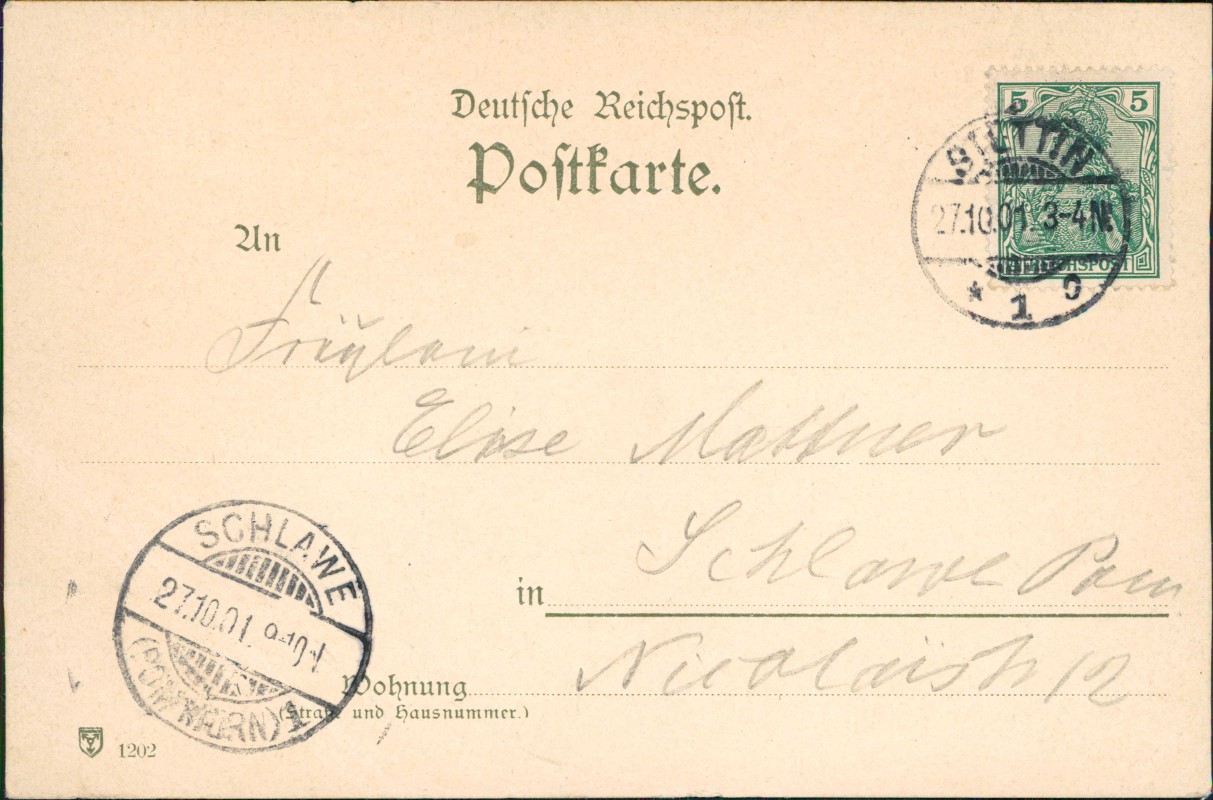 Deutsche Reichspost.
Postkarte.
5 5
REICHSPOST
STETTIN
27.10.01. 3-4N.
* 1 o
An
Fräulein
Elise Mattner
in Schlawe Pom
Nicolaistr 12
Wohnung
(Straße und Hausnummer.)
SCHLAWE
27.10.01.
(POMMERN) 1
1202